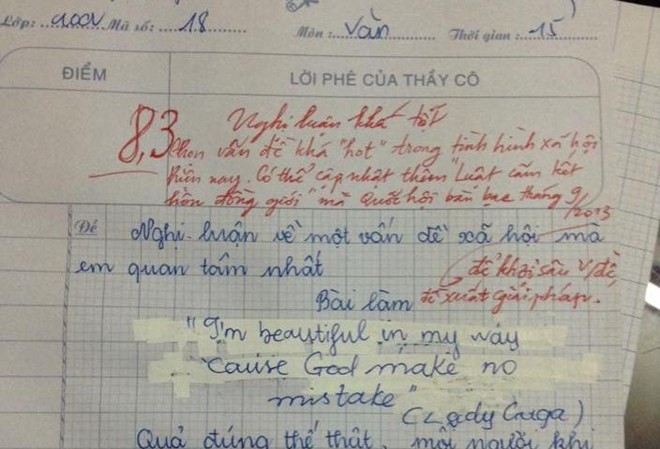 Lớp: 10CV Mã số: 18 Môn: Văn Thời gian: 15
ĐIỂM LỜI PHÊ CỦA THẦY CÔ
8,3 Nghị luận khá tốt
Chọn vấn đề khá "hot" trong tình hình xã hội
hiện nay. Có thể cập nhật thêm "Luật cấm kết
hôn đồng giới" mà Quốc hội bàn bạc tháng 9/2013
Đề Nghị luận về một vấn đề xã hội mà
em quan tâm nhất
để khơi sâu v/đề,
đề xuất giải pháp.
Bài làm
"I'm beautiful in my way
'cause God make no
mistake"
(Lady Gaga)
Quả đúng thế thật, mỗi người khi